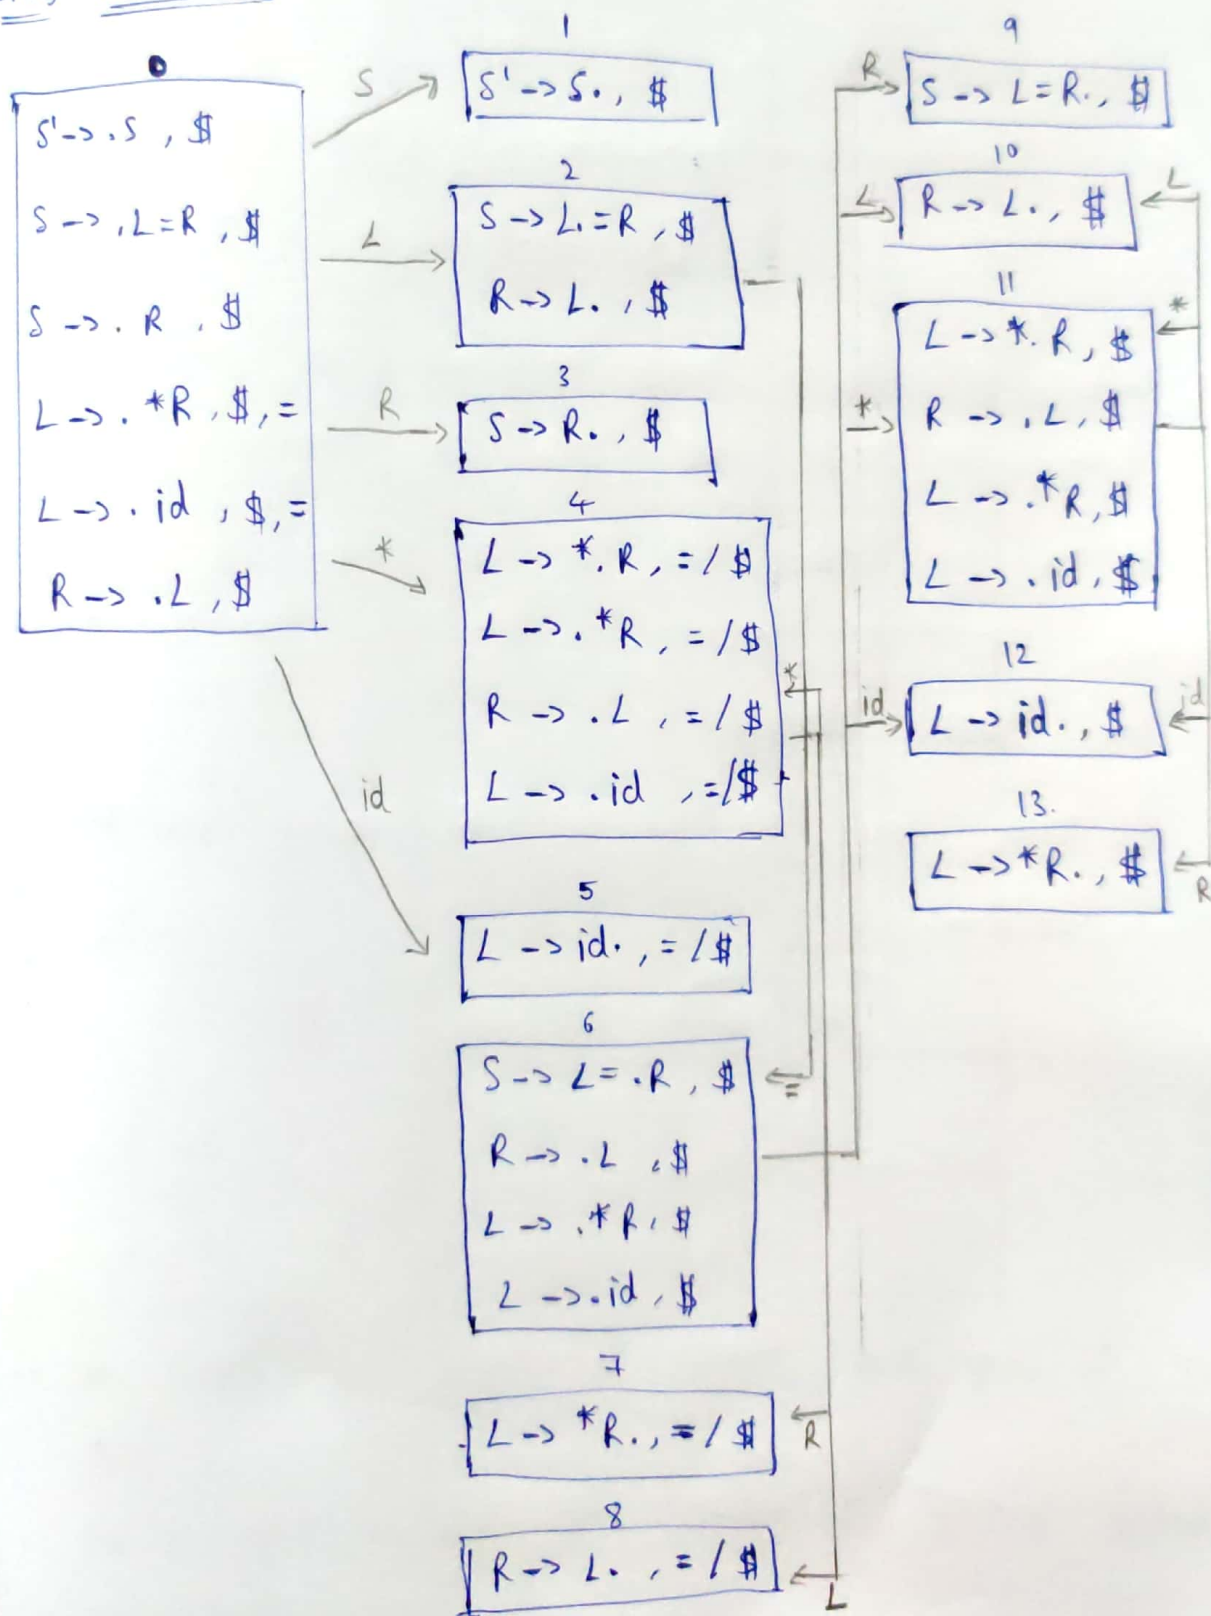 0
S' -> .S , $
S -> .L=R , $
S -> . R , $
L -> . *R , $, =
L -> . id , $, =
R -> .L , $
S
L
R
*
id
1
S' -> S. , $
2
S -> L.=R , $
R -> L. , $
3
S -> R. , $
4
L -> *.R , =/$
L -> .*R , =/$
R -> .L , =/$
L -> .id , =/$
*
5
L -> id. , =/$
6
S -> L=.R , $
=
R -> .L , $
L -> .*R , $
L -> .id , $
7
L -> *R. , =/$
R
8
R -> L. , =/$
L
9
R
S -> L=R. , $
10
L
R -> L. , $
L
11
L -> *.R , $
*
*
R -> .L , $
L -> .*R, $
L -> .id , $
12
id
L -> id. , $
id
13.
L -> *R. , $
R